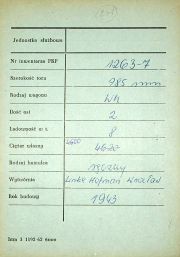 Jednostka służbowa
Nr inwentarza PKP 1263-7
Szerokość toru 785 mm
Rodzaj wagonu Wh
Ilość osi 2
Ładowność w t. 8
Ciężar własny 4600 4620
Rodzaj hamulca ręczny
Wytwórnia Linke Hofman Wrocław
Rok budowy 1943